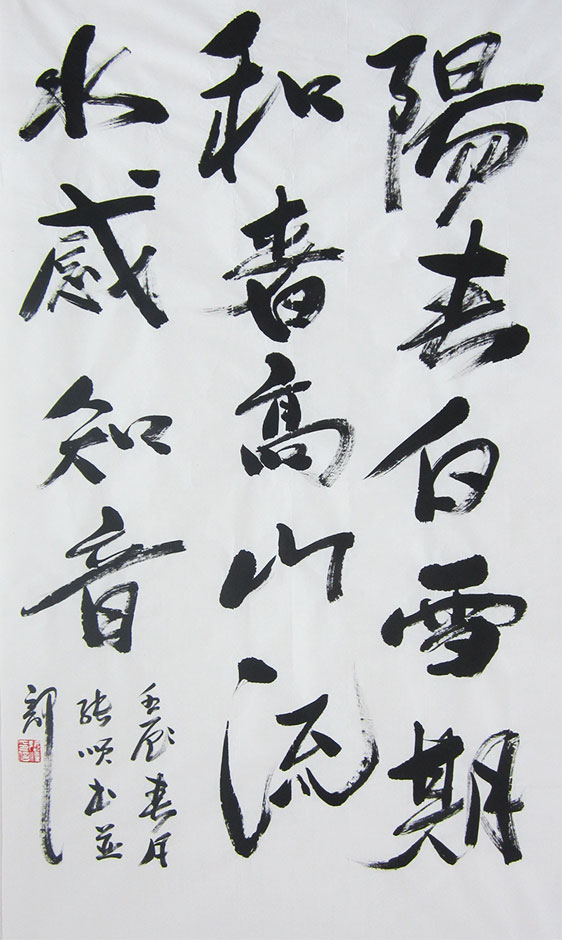 陽春白雪期
和者高山流
水感知音
壬辰春月
張順書並